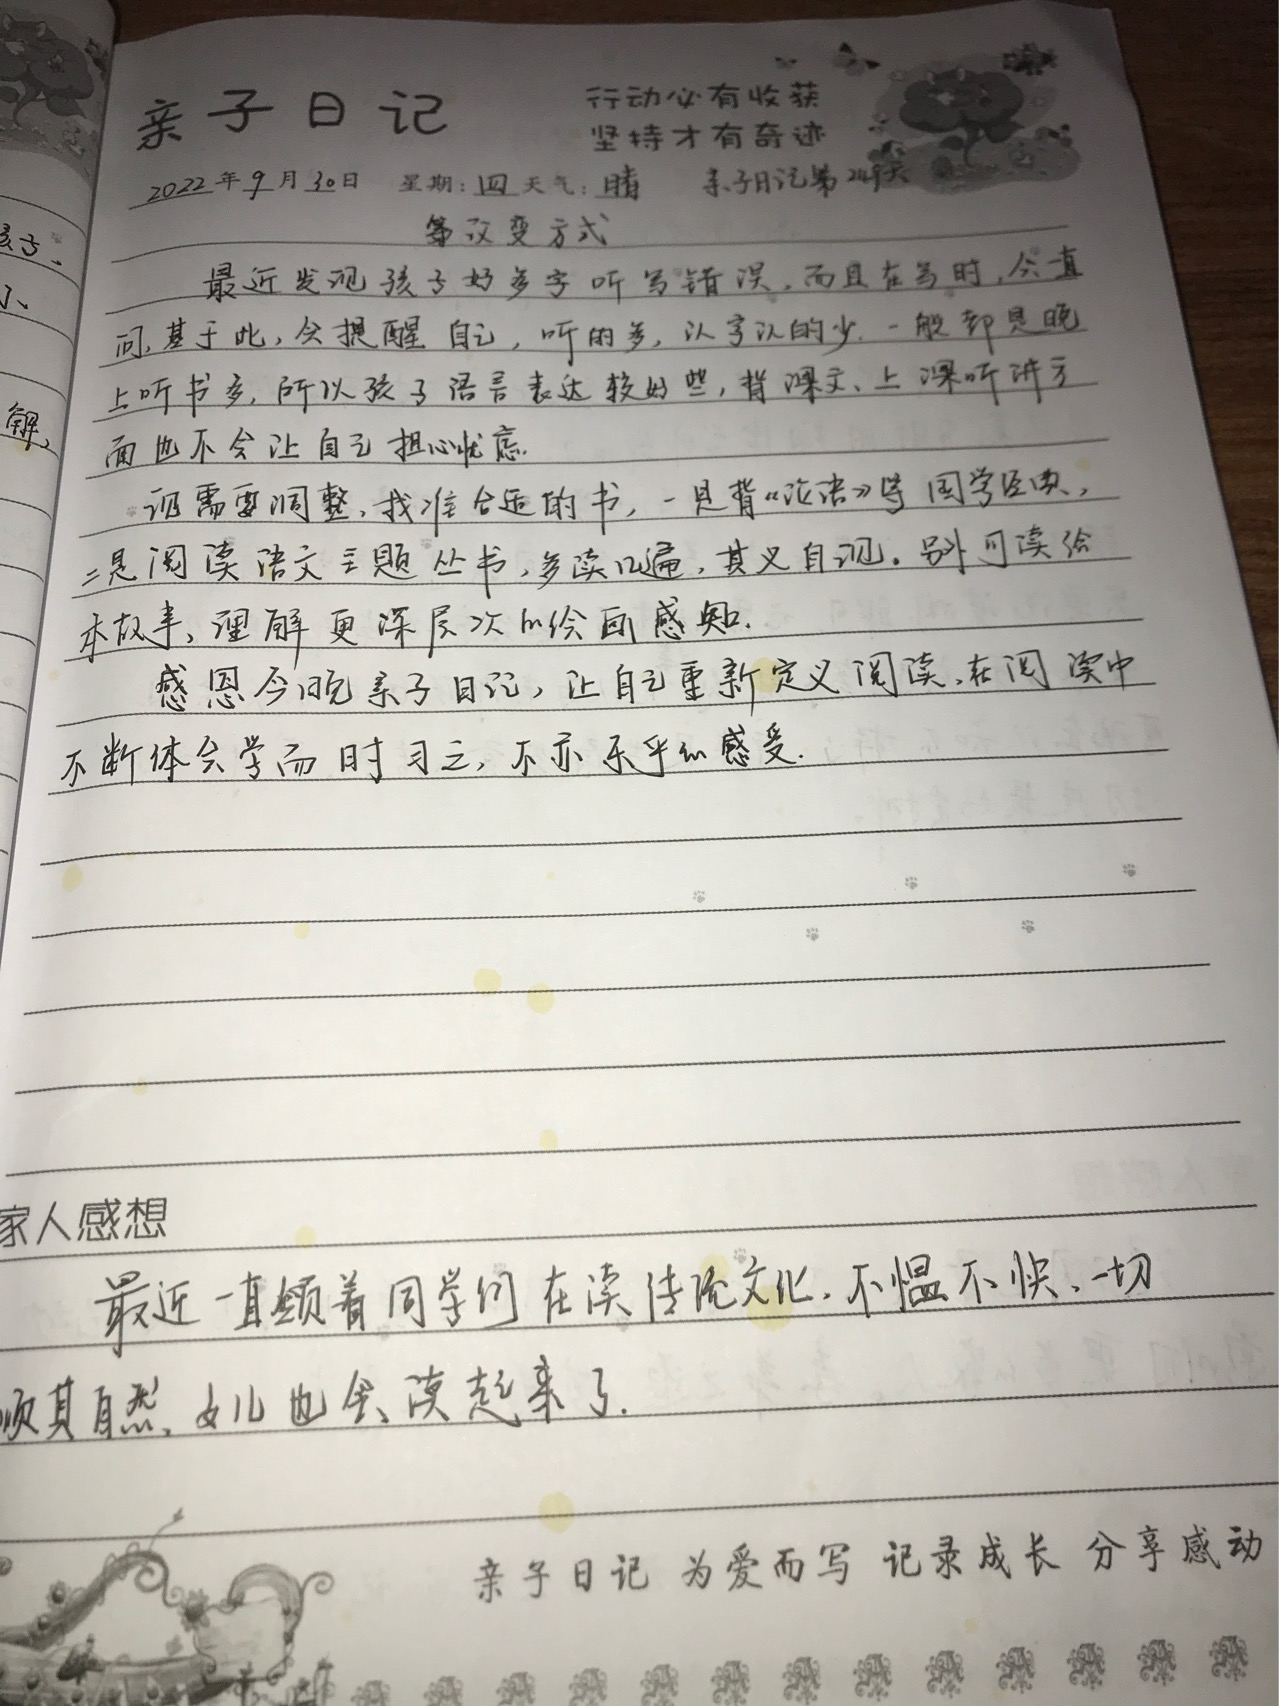 亲子日记
行动必有收获
坚持才有奇迹
2022年9月30日 星期:四 天气:晴 亲子日记第 天
改变方式
最近发现孩子好多字听写错误,而且在写时,会直
问,基于此,会提醒自己,听的多,认字认的少.一般都是晚
上听书多,所以孩子语言表达较好些,背课文、上课听讲方
面也不会让自己担心忧虑.
现需要调整,找准合适的书,一是背《论语》等国学经典,
二是阅读语文主题丛书,多读几遍,其义自现。另外可读绘
本故事,理解更深层次的绘画感知.
感恩今晚亲子日记,让自己重新定义阅读,在阅读中
不断体会学而时习之,不亦乐乎的感受.
孩子、
解,
家人感想
最近一直领着同学们在读传统文化.不愠不快、一切
顺其自然,女儿也会读起来了.
亲子日记 为爱而写 记录成长 分享感动